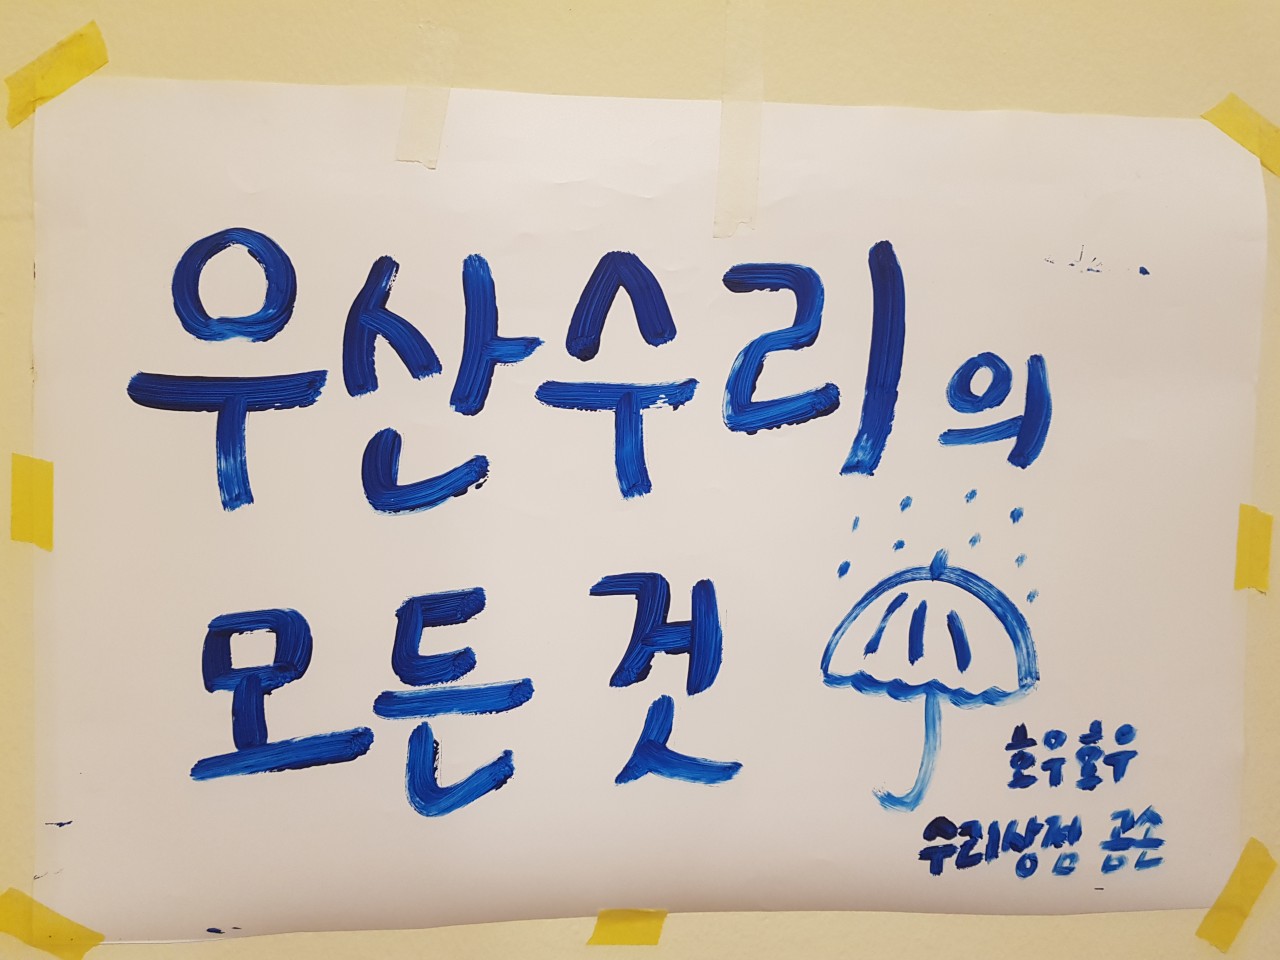 우산수리의
모든 것
호우호우
수리상점 곰손